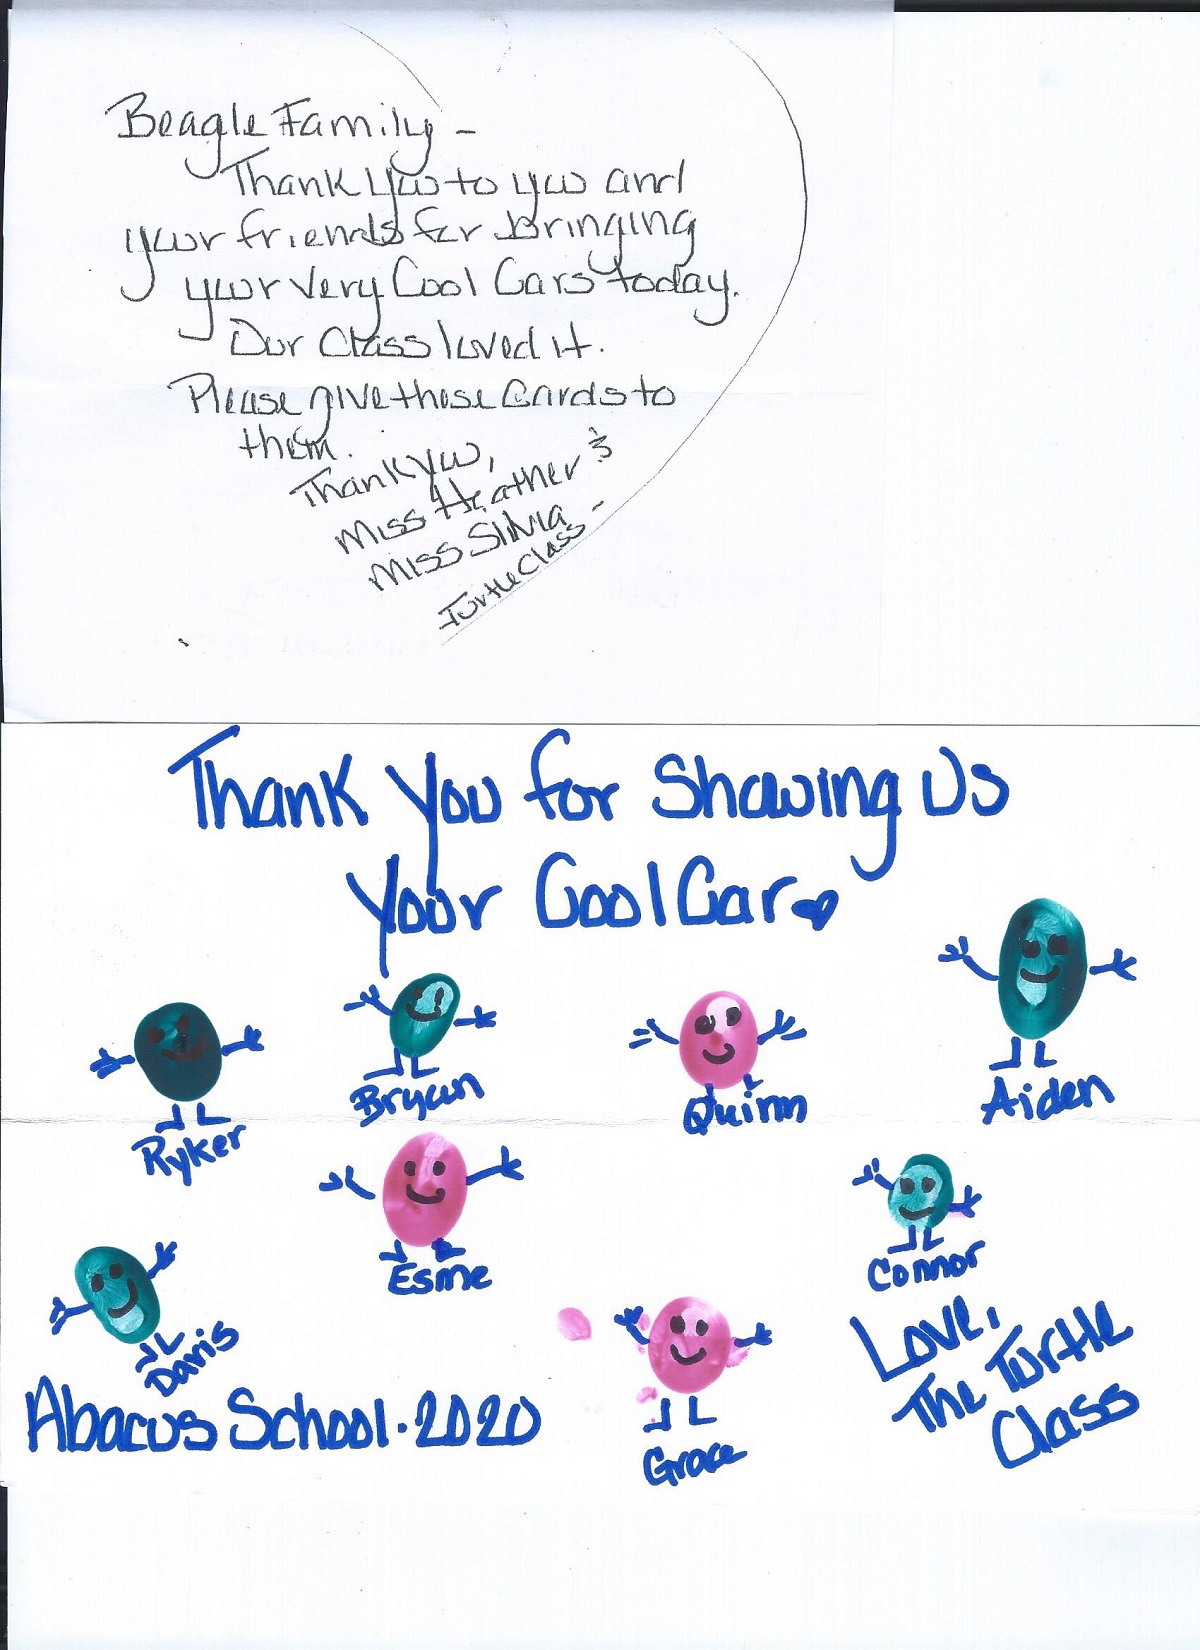 Beagle Family -
Thank You to you and
your friends for bringing
your Very Cool Cars today.
Our Class loved it.
Please give these Cards to
them.
Thank You,
Miss Heather &
Miss Silvia -
Turtle Class
Thank You for Showing Us
Your Cool Car
Ryker
Bryan
Quinn
Aiden
Esme
Connor
Davis
Grace
Abacus School. 2020
Love,
The Turtle
Class